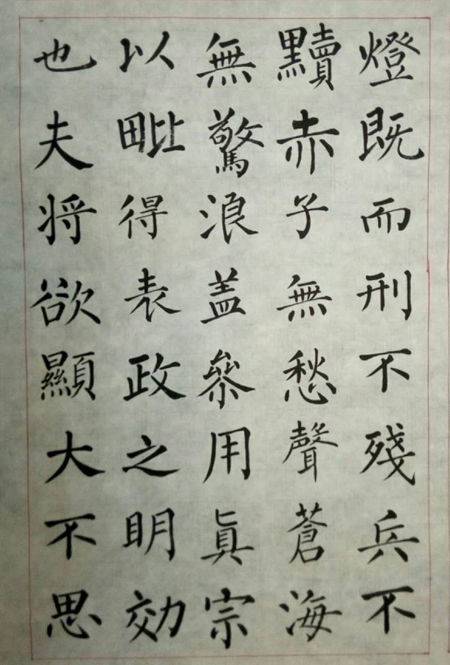 燈既而刑不殘兵不
黷赤子無愁聲蒼海
無驚浪盖叅用眞宗
以毗得表政之明効
也夫将欲顯大不思